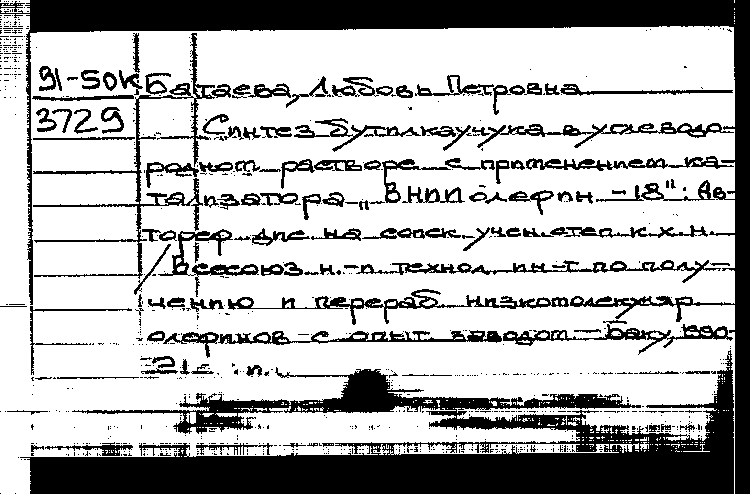 91-50к Батаева, Любовь Петровна
3729 Синтез бутилкаучука в углеводо-
родном растворе с применением ка-
тализатора „ВНИИолефин-18": Ав-
тореф. дис. на соиск. учен. степ. к. х. н.
Всесоюз. н.-и. технол. ин-т по полу-
чению и перераб. низкомолекуляр.
олефинов с опыт. заводом - Баку, 1990.
21